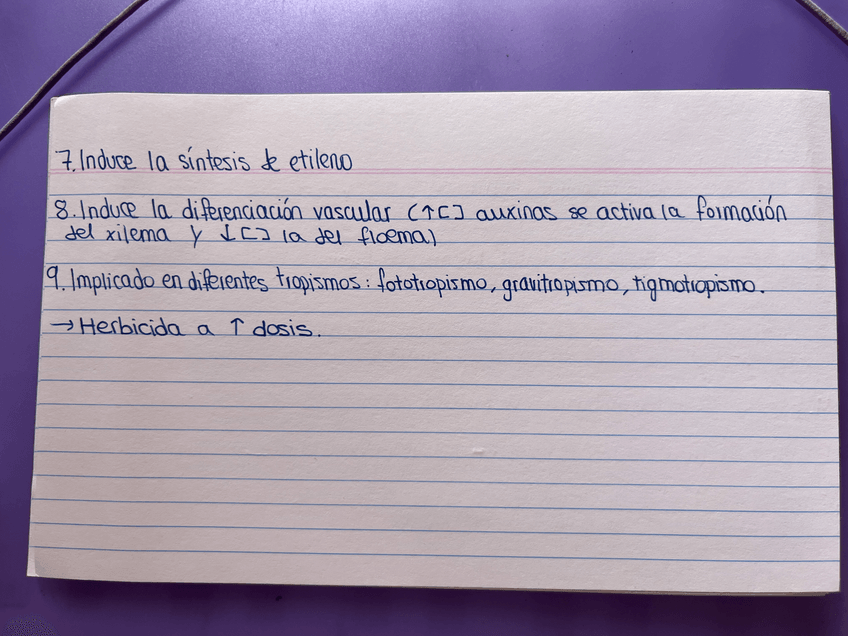 7. Induce la síntesis de etileno
8. Induce la diferenciación vascular (↑[] auxinas se activa la formación
del xilema y ↓[] la del floema)
9. Implicado en diferentes tropismos: fototropismo, gravitropismo, tigmotropismo.
→ Herbicida a ↑ dosis.